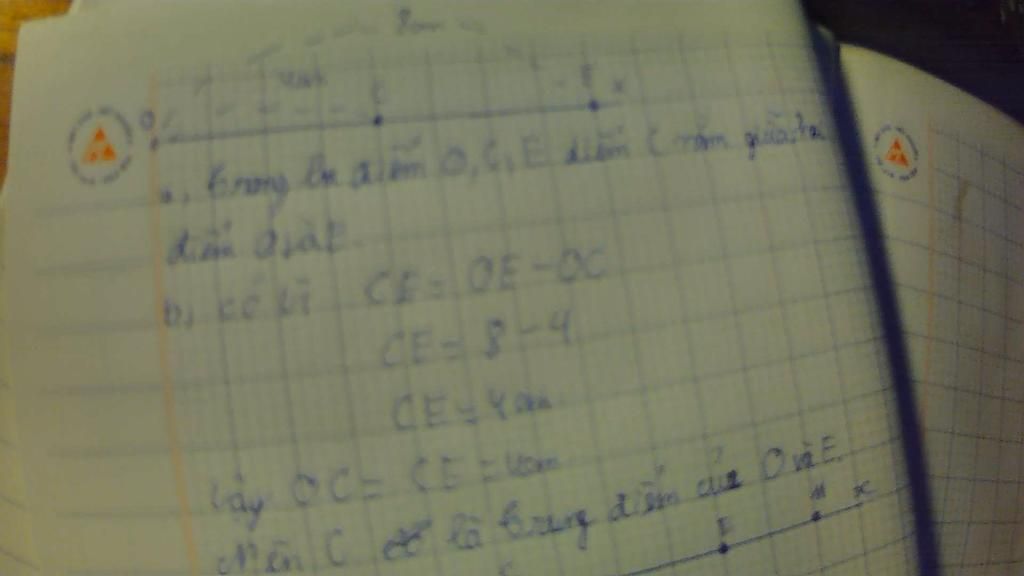 8cm
4cm
O C E x
a, trong ba điểm O, C, E điểm C nằm giữa hai
điểm O và E.
b, có vì CE = OE - OC
CE = 8 - 4
CE = 4cm
Vậy OC = CE = 4cm
Nên C là trung điểm của O và E.
E M x